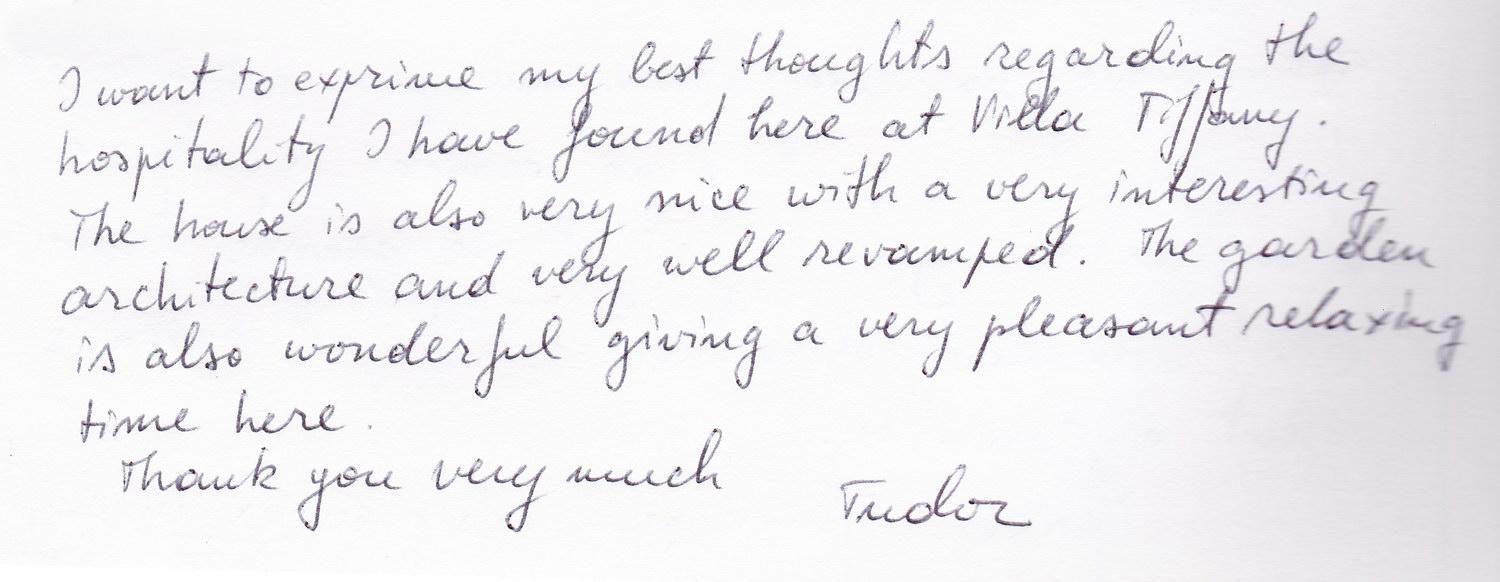 I want to exprime my best thoughts regarding the
hospitality I have found here at Villa Tiffany.
The house is also very nice with a very interesting
architecture and very well revamped. The garden
is also wonderful giving a very pleasant relaxing
time here.
Thank you very much
Tudor